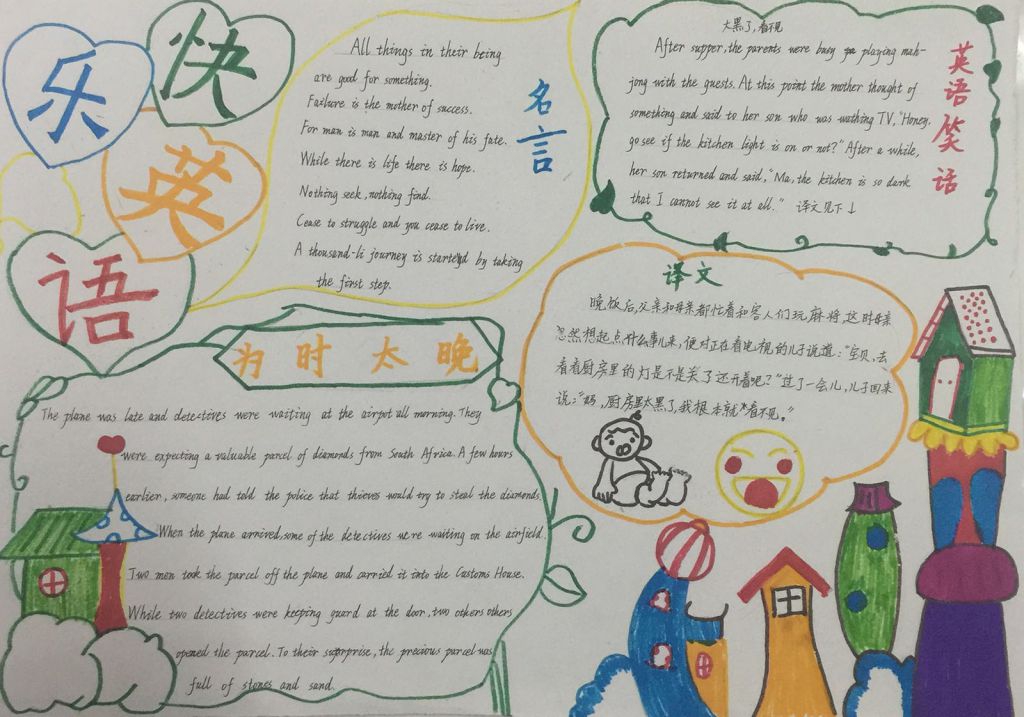 快
乐
英
语
All things in their being
are good for something.
Failure is the mother of success.
For man is man and master of his fate.
While there is life there is hope.
Nothing seek, nothing find.
Cease to struggle and you cease to live.
A thousand-li journey is started by taking
the first step.
名言
太黑了,看不见
After supper, the parents were busy playing mah-
jong with the guests. At this point the mother thought of
something and said to her son who was wathing TV, "Honey,
go see if the kitchen light is on or not?" After a while,
her son returned and said, "Ma, the kitchen is so dark
that I cannot see it at all." 译文见下↓
英语笑话
译文
晚饭后,父亲和母亲都忙着和客人们玩麻将,这时母亲
忽然想起点什么事儿来,便对正在看电视的儿子说道:“宝贝,去
看看厨房里的灯是不是关了还开着呢?”过了一会儿,儿子回来
说:“妈,厨房里太黑了,我根本就看不见。”
为时太晚
The plane was late and detectives were waiting at the airpot all morning. They
were expecting a valuable parcel of diamonds from South Africa. A few hours
earlier, someone had told the police that thieves would try to steal the diamonds.
When the plane arrived, some of the detectives were waiting on the airfield.
Two men took the parcel off the plane and carried it into the Customs House.
While two detectives were keeping guard at the door, two others others
opened the parcel. To their surprise, the precious parcel was
full of stones and sand.